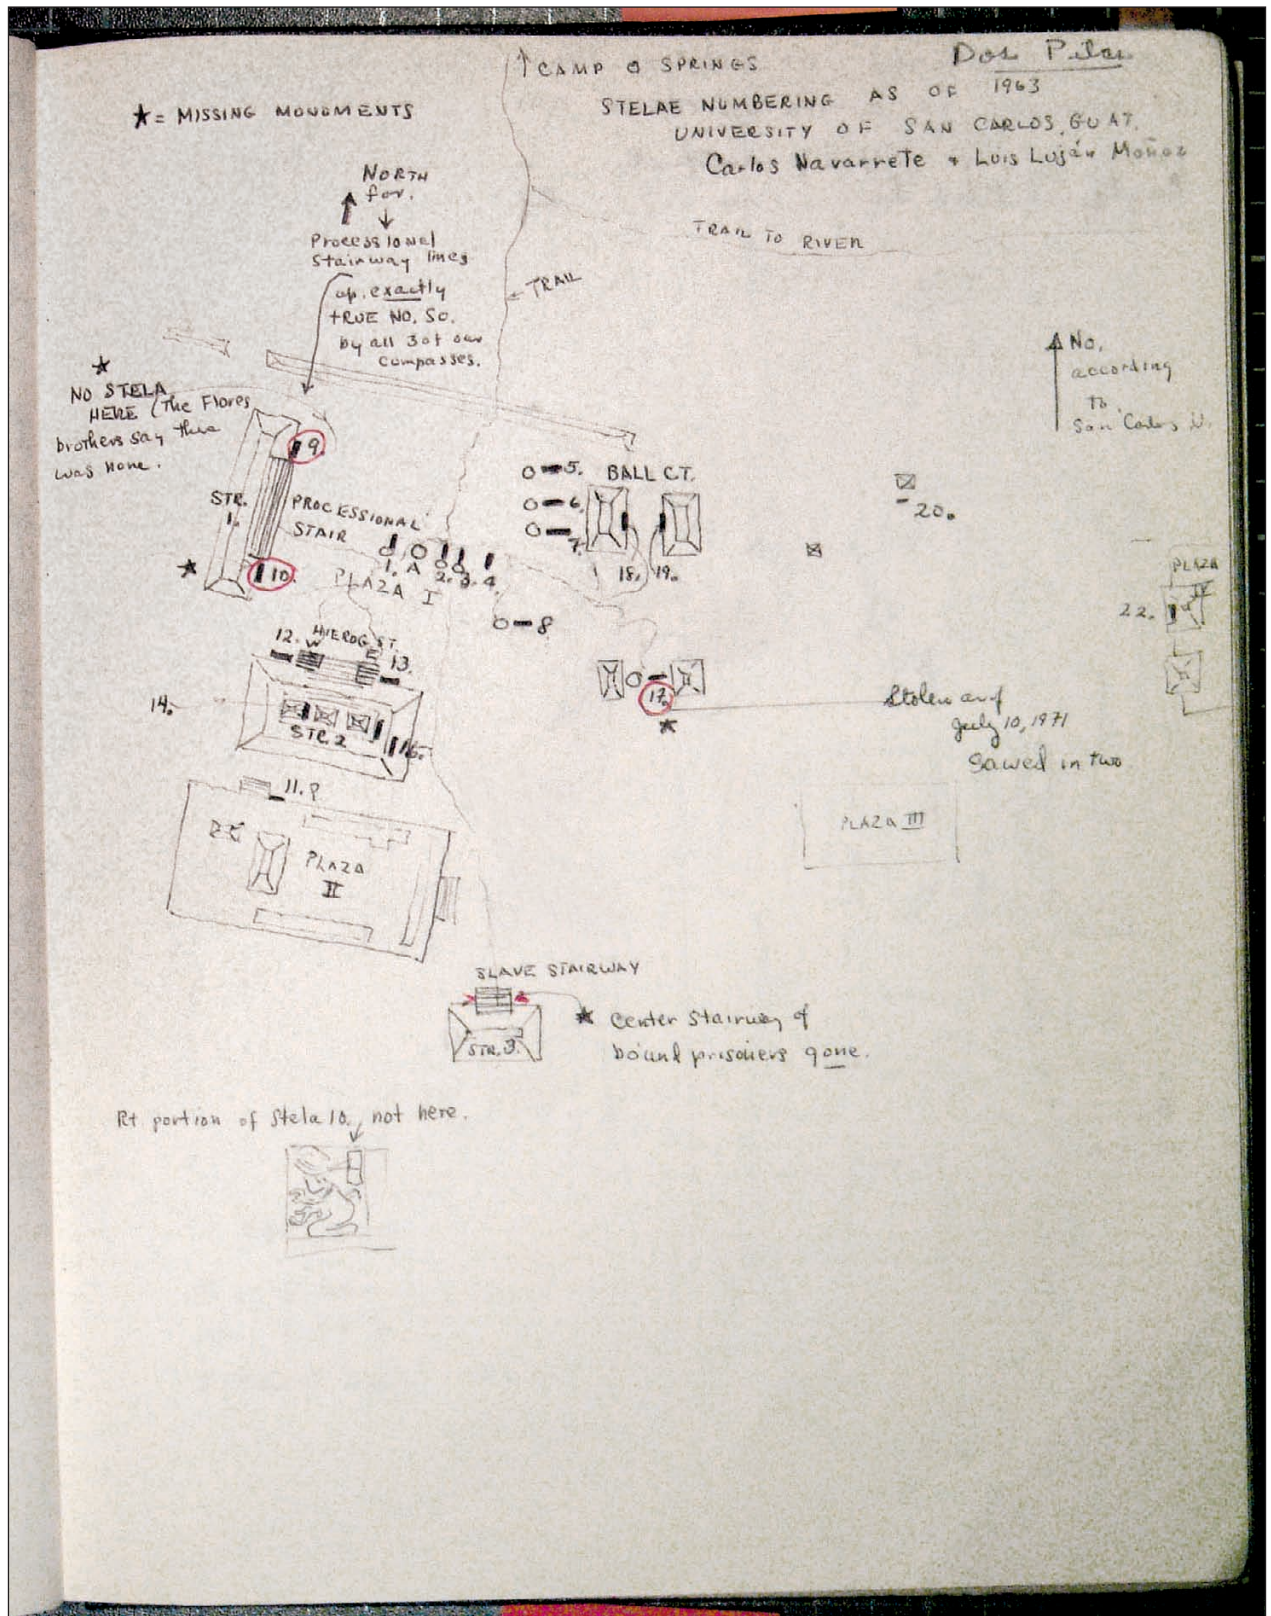 Dos Pilas
↑ CAMP & SPRINGS
STELAE NUMBERING AS OF 1963
UNIVERSITY OF SAN CARLOS, GUAT.
Carlos Navarrete & Luis Luján Muñoz
★ = MISSING MONUMENTS
NORTH
for
Processional
Stairway lines
up exactly
TRUE NO. SO.
by all 3 of our
compasses.
TRAIL TO RIVER
← TRAIL
No.
according
to
San Carlos U.
★
NO STELA
HERE (The Flores
brothers say there
was none.
9.
STR.
1.
PROCESSIONAL
STAIR
★
10.
5.
6.
7.
BALL CT.
18.
19.
20.
1. A 2. 3. 4.
PLAZA I
8
PLAZA
IV
22.
12.
HIEROG ST.
W
E
13.
14.
STR. 2
15.
17.
★
Stolen as of
July 10, 1971
Sawed in two
11. ?
PLAZA
II
PLAZA III
SLAVE STAIRWAY
STR. 3.
★ Center Stairway of
bound prisoners gone.
Rt portion of Stela 10, not here.